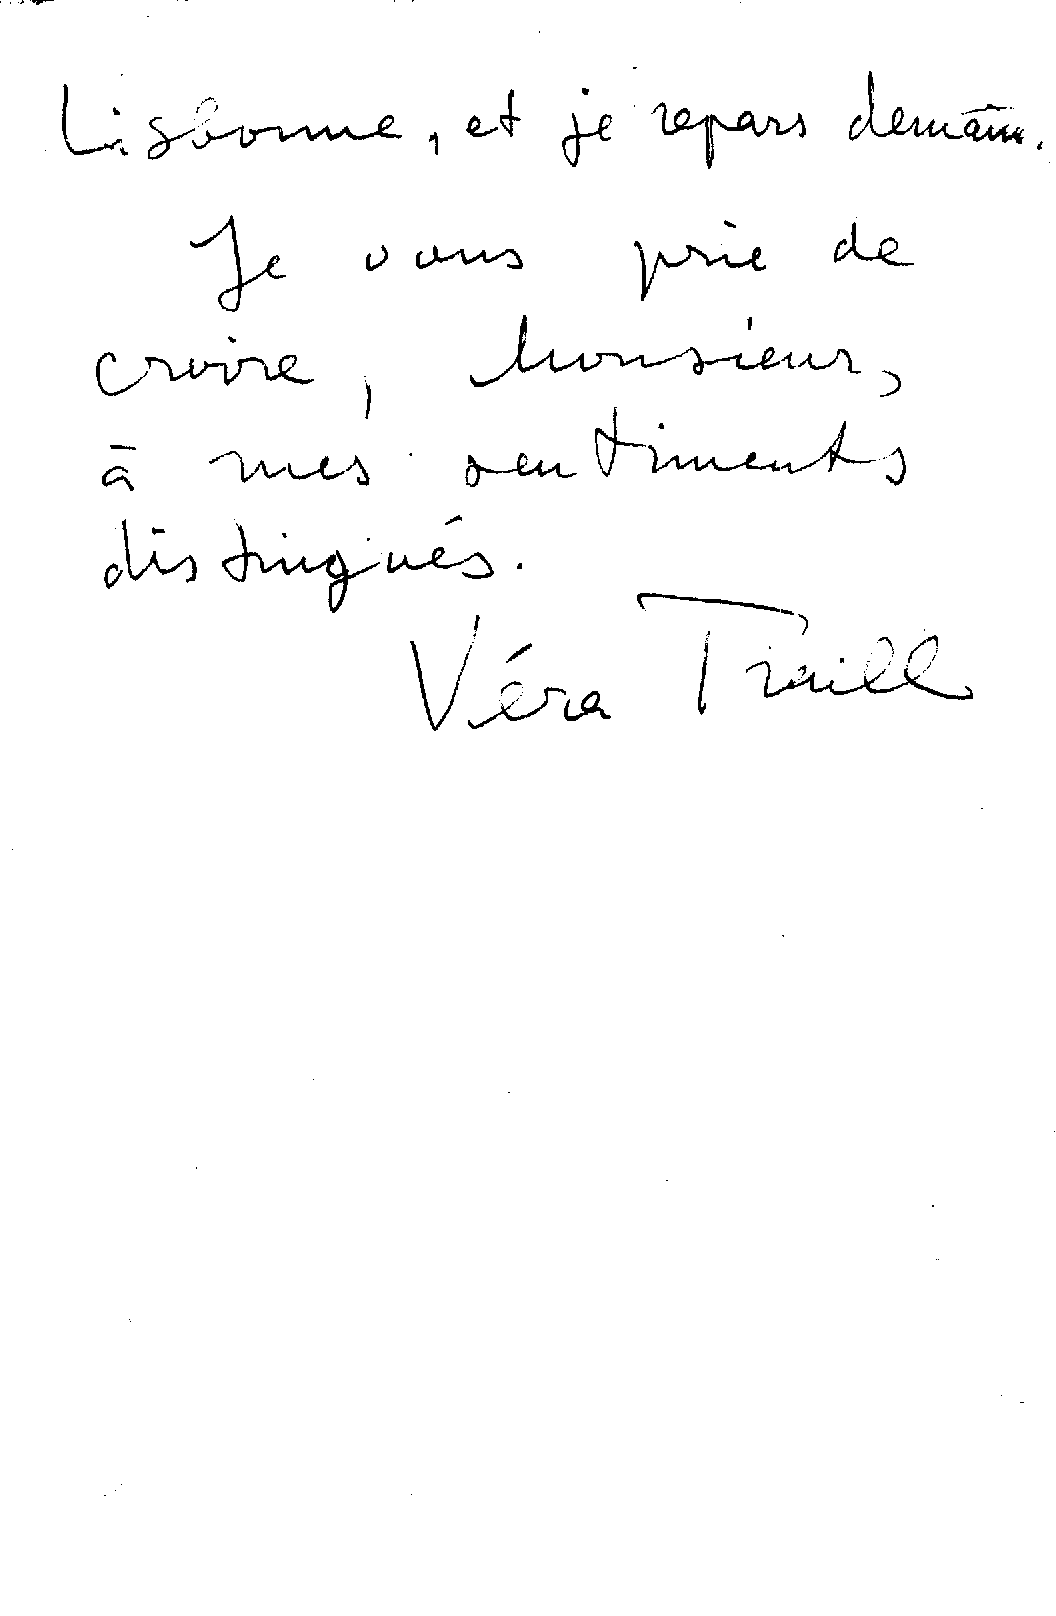 Lisbonne, et je repars demain.
Je vous prie de
croire, Monsieur,
à mes sentiments
distingués.
Véra Traill